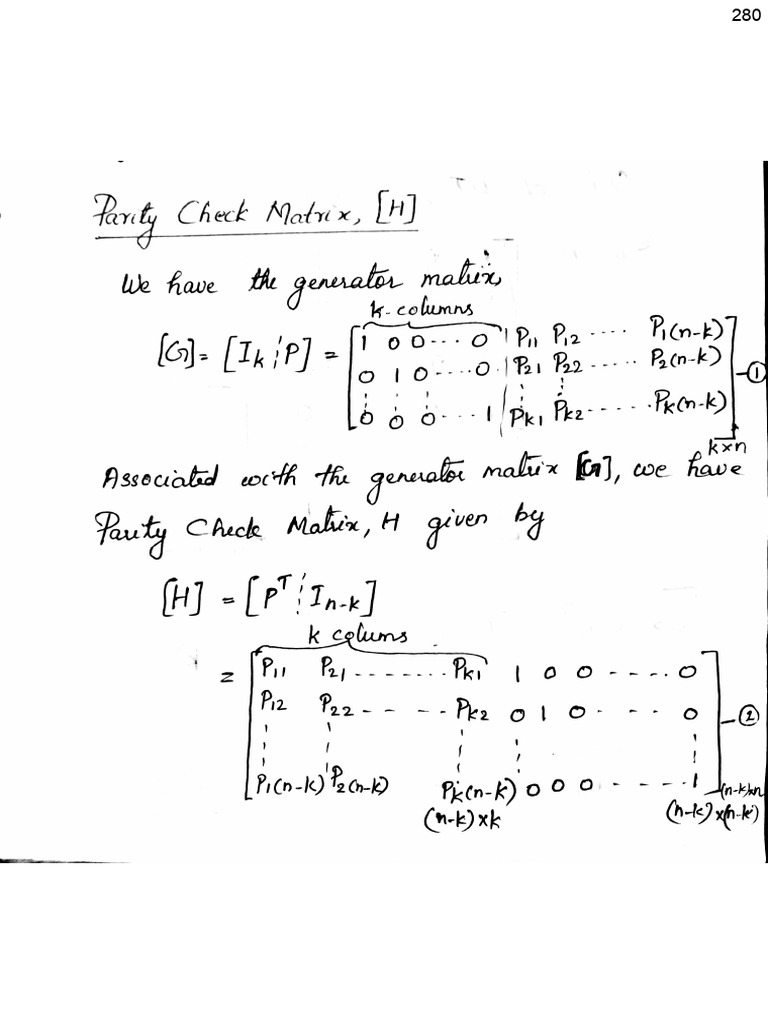 280
Parity Check Matrix, [H]
We have the generator matrix,
k-columns
[G] = [Ik ¦ P] = [1 0 0 ···· 0 | P11 P12 ···· P1(n-k)
0 1 0 ····· 0 | P21 P22 ······ P2(n-k) —①
⋮ ⋮ ⋮ ⋮ ⋮
0 0 0 ···· 1 | Pk1 Pk2 ······ Pk(n-k)]
k×n
Associated with the generator matrix [G], we have
Parity Check Matrix, H given by
[H] = [P^T ¦ In-k]
k colums
= [P11 P21 -------- Pk1 1 0 0 ----- 0
P12 P22 - - - --- Pk2 0 1 0 - - - - 0 —②
⋮ ⋮ ⋮ ⋮ ⋮
P1(n-k) P2(n-k) Pk(n-k) 0 0 0 - - - - - 1] (n-k)×n
(n-k)×k (n-k)×(n-k)